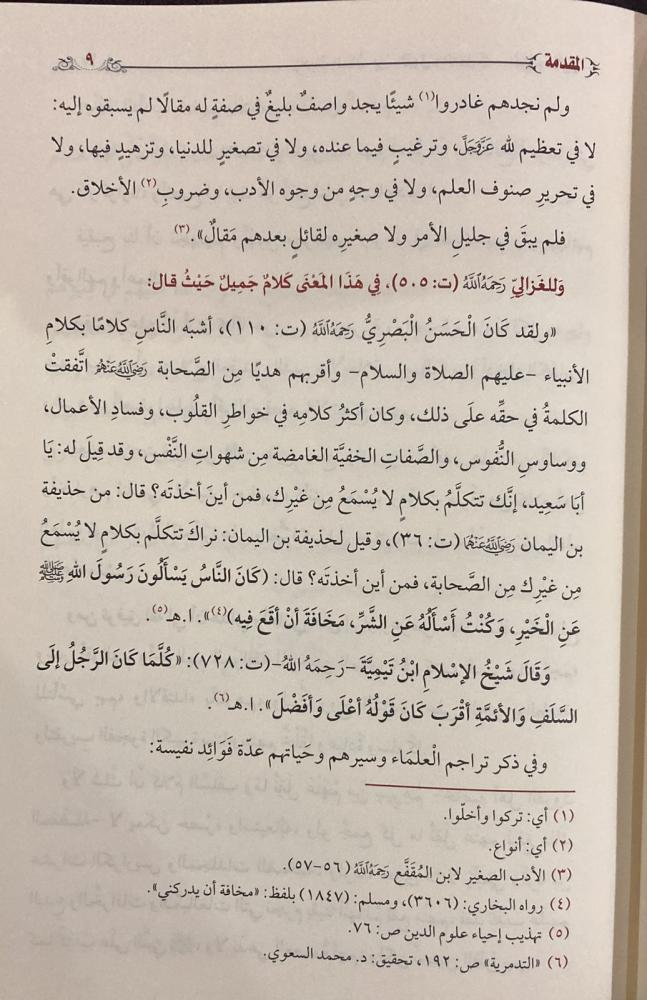 المقدمة ٩
ولم نجدهم غادروا(١) شيئًا يجد واصفٌ بليغٌ في صفةٍ له مقالًا لم يسبقوه إليه:
لا في تعظيم لله عَزَّوَجَلَّ، وترغيبٍ فيما عنده، ولا في تصغيرٍ للدنيا، وتزهيدٍ فيها، ولا
في تحريرِ صنوف العلم، ولا في وجهٍ من وجوه الأدب، وضروبِ(٢) الأخلاق.
فلم يبقَ في جليلِ الأمر ولا صغيره لقائلٍ بعدهم مَقالٌ».(٣)
وَللغَزاليِّ رَحِمَهُ اللَّهُ (ت: ٥٠٥)، فِي هَذَا المَعْنَى كَلامٌ جَمِيلٌ حَيْثُ قال:
«ولقد كَانَ الْحَسَنُ الْبَصْرِيُّ رَحِمَهُ اللَّهُ (ت: ١١٠)، أشبَه النَّاسِ كلامًا بكلامِ
الأنبياء -عليهم الصلاة والسلام- وأقربهم هديًا مِن الصَّحابة رَضِيَ اللَّهُ عَنْهُمْ اتَّفقتْ
الكلمةُ في حقِّه علَى ذلك، وكان أكثرُ كلامِه في خواطرِ القلُوب، وفسادِ الأعمال،
ووساوسِ النُّفوس، والصَّفاتِ الخفيَّة الغامضة مِن شهواتِ النَّفْس، وقد قِيلَ له: يَا
أبَا سَعِيد، إنَّك تتكلَّمُ بكلامٍ لا يُسْمَعُ مِن غيْرِك، فمن أينَ أخذتَه؟ قال: من حذيفة
بن اليمان رَضِيَ اللَّهُ عَنْهُمَا (ت: ٣٦)، وقيل لحذيفة بن اليمان: نراكَ تتكلَّم بكلامٍ لا يُسْمَعُ
مِن غيْرِك مِن الصَّحابة، فمن أين أخذتَه؟ قال: (كَانَ النَّاسُ يَسْأَلُونَ رَسُولَ اللهِ ﷺ
عَنِ الْخَيْرِ، وَكُنْتُ أَسْأَلُهُ عَنِ الشَّرِّ، مَخَافَةَ أَنْ أَقَعَ فِيهِ)(٤)». ا.هـ(٥).
وَقَالَ شَيْخُ الإِسْلامِ ابْنُ تَيْمِيَّةَ -رَحِمَهُ اللهُ-(ت: ٧٢٨): «كُلَّمَا كَانَ الرَّجُلُ إلَى
السَّلَفِ وَالأَئمَّةِ أَقْرَبَ كَانَ قَوْلُهُ أَعْلَى وَأَفْضَلَ». ا.هـ(٦).
وفي ذكر تراجم الْعلمَاء وسيرهم وحَياتهم عدّة فَوَائِد نفيسة:
(١) أي: تركوا وأخلّوا.
(٢) أي: أنواع.
(٣) الأدب الصغير لابن المُقَفَّع رَحِمَهُ اللَّهُ (٥٦-٥٧).
(٤) رواه البخاري: (٣٦٠٦)، ومسلم: (١٨٤٧) بلفظ: «مخافة أن يدركني».
(٥) تهذيب إحياء علوم الدين ص: ٧٦.
(٦) «التدمرية» ص: ١٩٢، تحقيق: د. محمد السعوي.